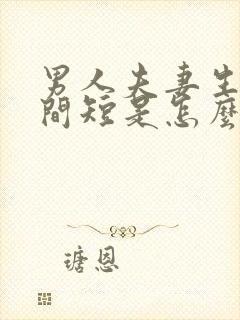 男人夫妻生
間短是怎麼
瑭恩